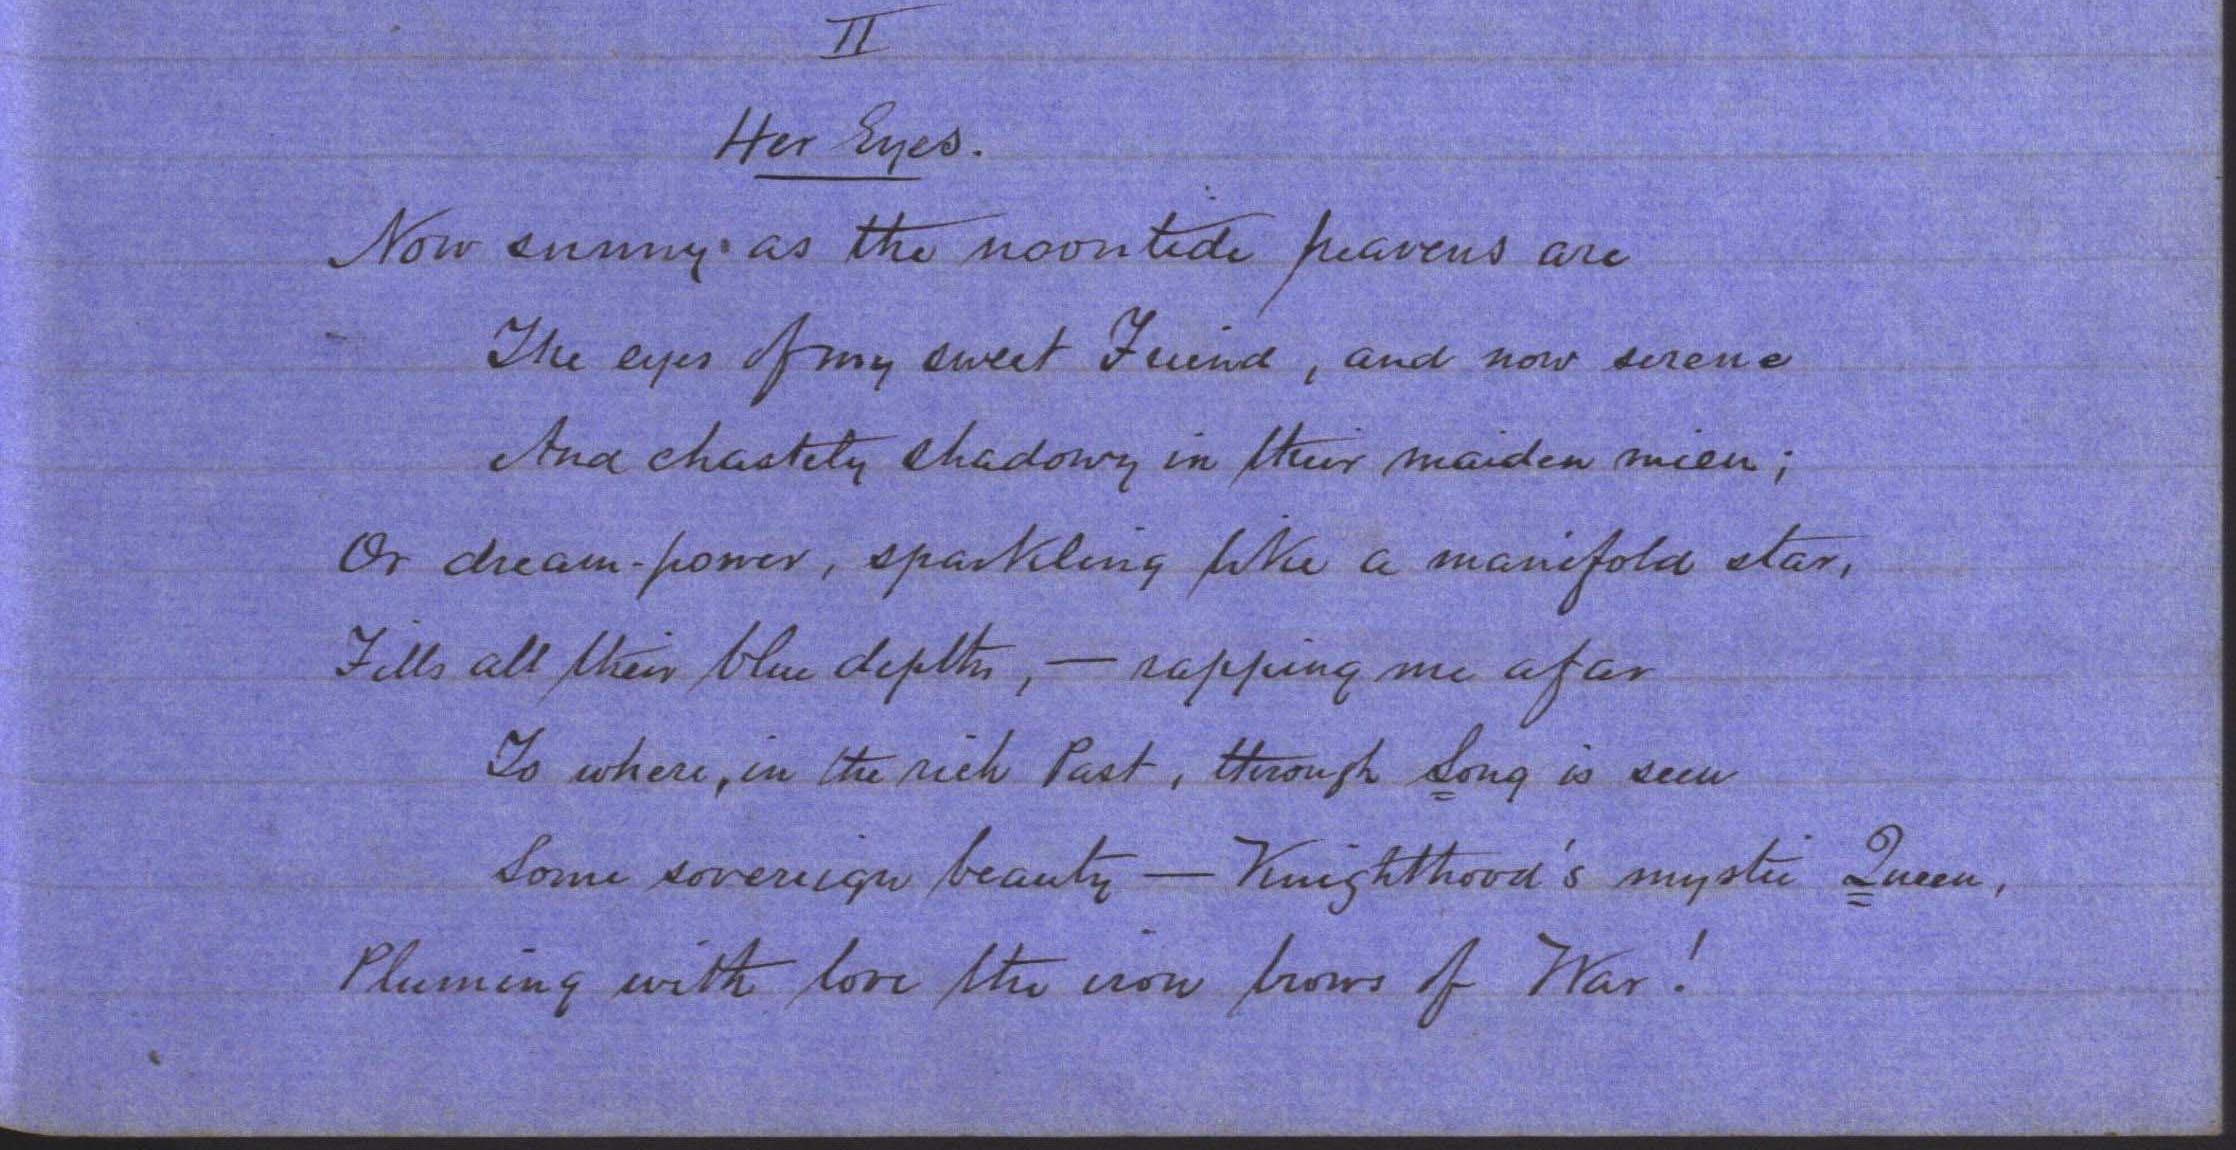 II
Her Eyes.
Now sunny as the noontide heavens are
The eyes of my sweet Friend, and now serene
And chastely shadowy in their maiden mien;
Or dream-power, sparkling like a manifold star,
Fills all their blue depths, — rapping me afar
To where, in the rich Past, through Song is seen
Some sovereign beauty — Knighthood's mystic Queen,
Pluming with love the iron brows of War!